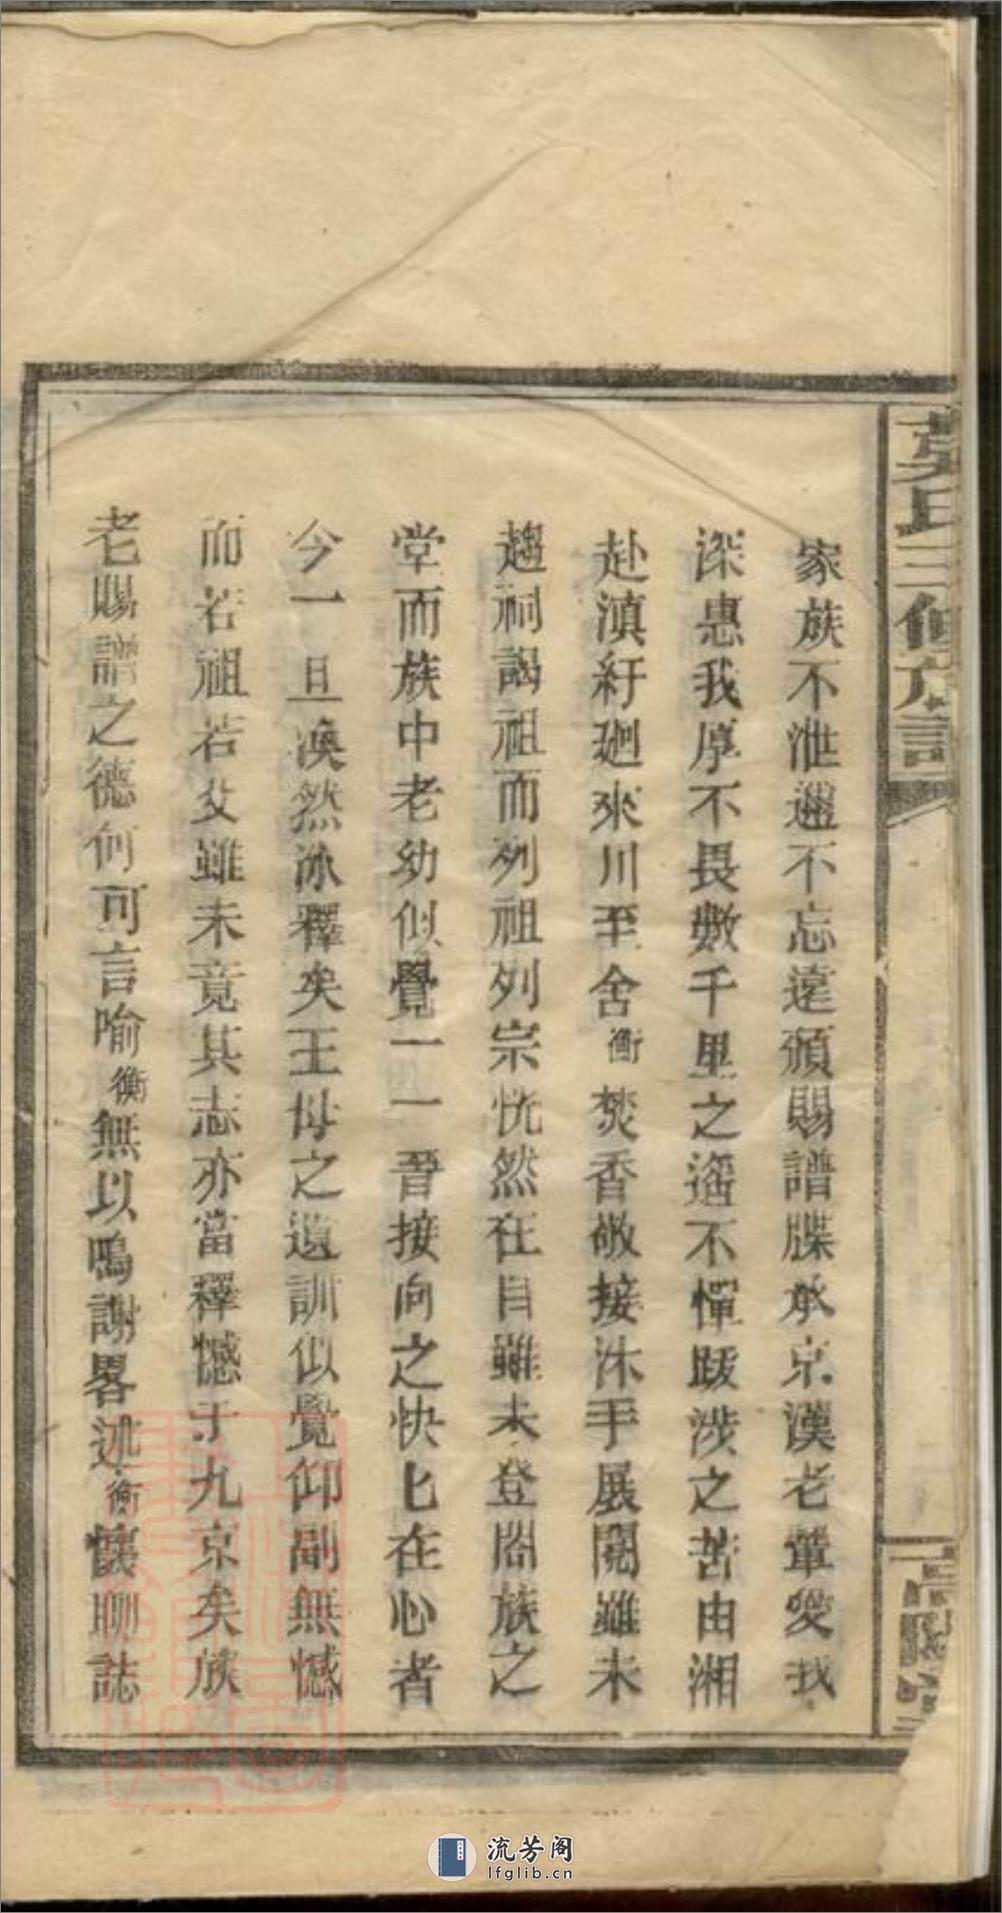 莫氏三修族譜
高陽堂
家族不泄邇不忘遠頒賜譜牒承京漢老輩愛我
深惠我厚不畏數千里之遥不憚跋涉之苦由湘
赴滇紆廻來川至舍衡焚香敬接沐手展開雖未
趨祠謁祖而列祖列宗恍然在目雖未登閤族之
堂而族中老幼似覺一一晉接向之快匕在心者
今一旦渙然氷釋矣王母之遺訓似覺仰副無憾
而若祖若父雖未竟其志亦當釋憾于九京矣族
老賜譜之德何可言喻衡無以鳴謝畧述衡懷聊誌
流芳阁
lfglib.cn